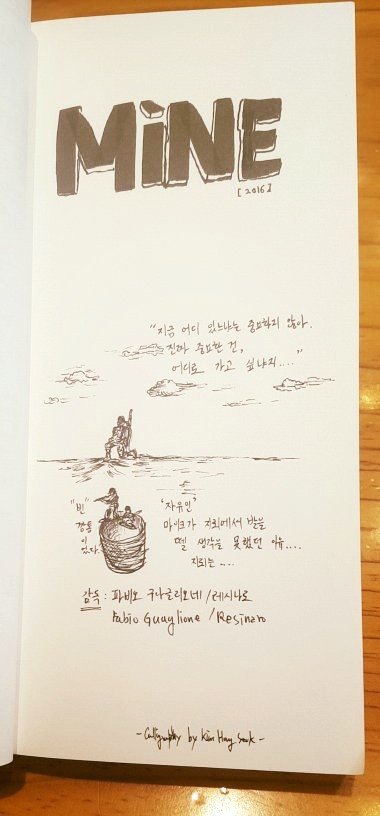 MINE
[2016]
"지금 어디 있느냐는 중요하지 않아.
진짜 중요한 건,
어디로 가고 싶냐지...."
"빈"
깡통
이
있다.
'자유인'
마이크가 지뢰에서 발을
뗄 생각을 못했던 이유....
지뢰는 ....
감독 : 파비오 구아글리오네/레시나로
Fabio Guaglione / Resinaro
-Calligraphy by Kim Hong Seok-